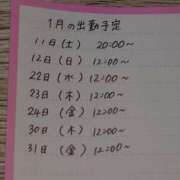 1月の出勤予定
11日(土) 20:00〜
12日(日) 12:00〜
22日(水) 12:00〜
23日(木) 12:00〜
24日(金) 12:00〜
30日(木) 12:00〜
31日(金) 12:00〜